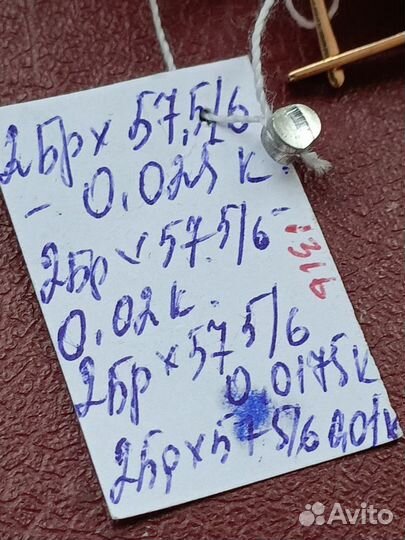 2Бр x 57,5/6
- 0.025 к.
2Бр x 57.5/6-
0.02 к.
2Бр x 57 5/6
0.0175 к
2Бр x 57 5/6 0,01к
Avito